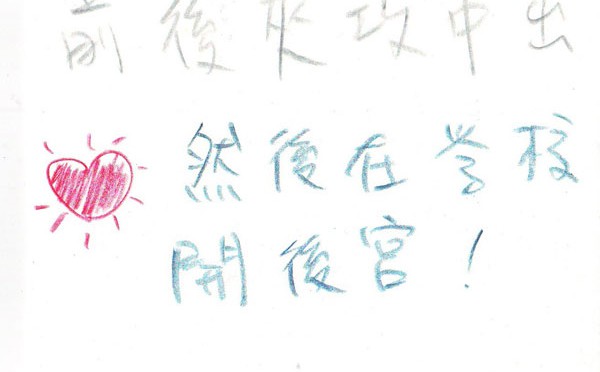 前後夾攻中出
然後在学校
開後宮!